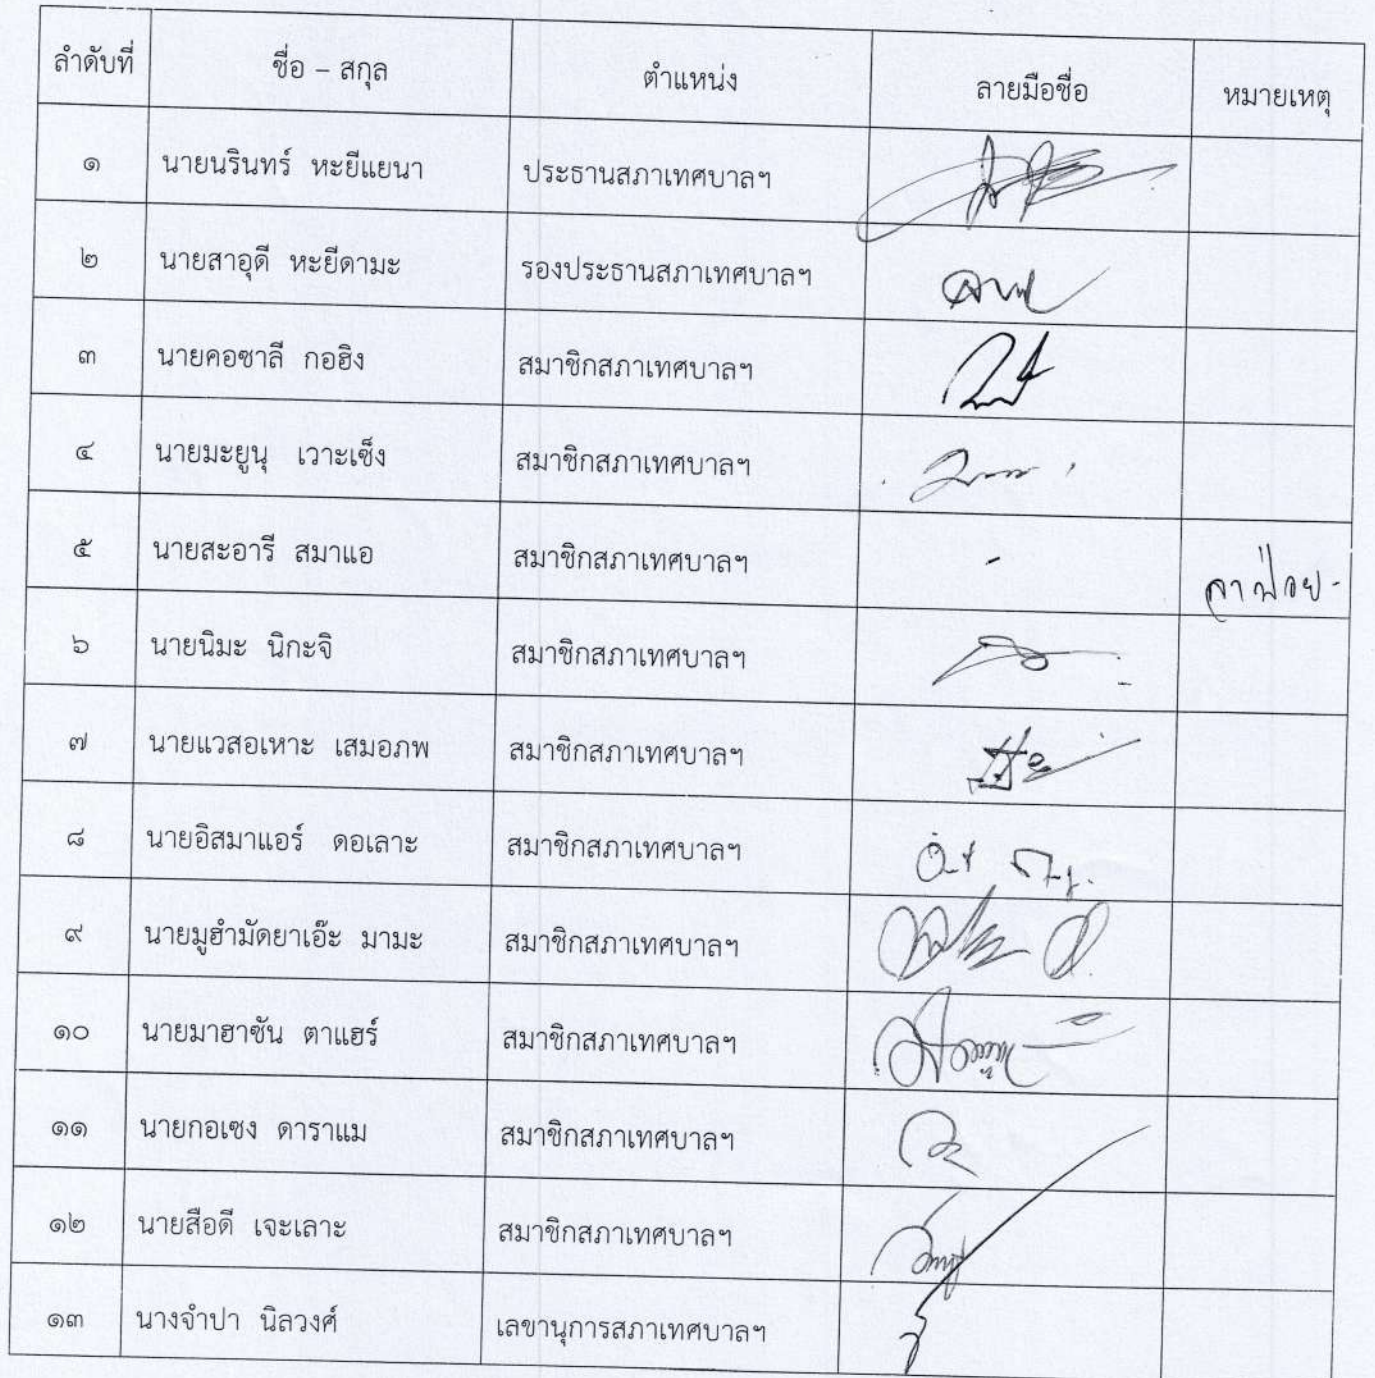 ลำดับที่ ชื่อ – สกุล ตำแหน่ง ลายมือชื่อ หมายเหตุ
๑ นายนรินทร์ หะยีแยนา ประธานสภาเทศบาลฯ
๒ นายสาอุดี หะยีดามะ รองประธานสภาเทศบาลฯ
๓ นายคอซาลี กอฮิง สมาชิกสภาเทศบาลฯ
๔ นายมะยูนุ เวาะเซ็ง สมาชิกสภาเทศบาลฯ
๕ นายสะอารี สมาแอ สมาชิกสภาเทศบาลฯ - ลาป่วย -
๖ นายนิมะ นิกะจิ สมาชิกสภาเทศบาลฯ
๗ นายแวสอเหาะ เสมอภพ สมาชิกสภาเทศบาลฯ
๘ นายอิสมาแอร์ ดอเลาะ สมาชิกสภาเทศบาลฯ
๙ นายมูฮำมัดยาเอ๊ะ มามะ สมาชิกสภาเทศบาลฯ
๑๐ นายมาฮาซัน ตาแฮร์ สมาชิกสภาเทศบาลฯ
๑๑ นายกอเซง ดาราแม สมาชิกสภาเทศบาลฯ
๑๒ นายสือดี เจะเลาะ สมาชิกสภาเทศบาลฯ
๑๓ นางจำปา นิลวงศ์ เลขานุการสภาเทศบาลฯ